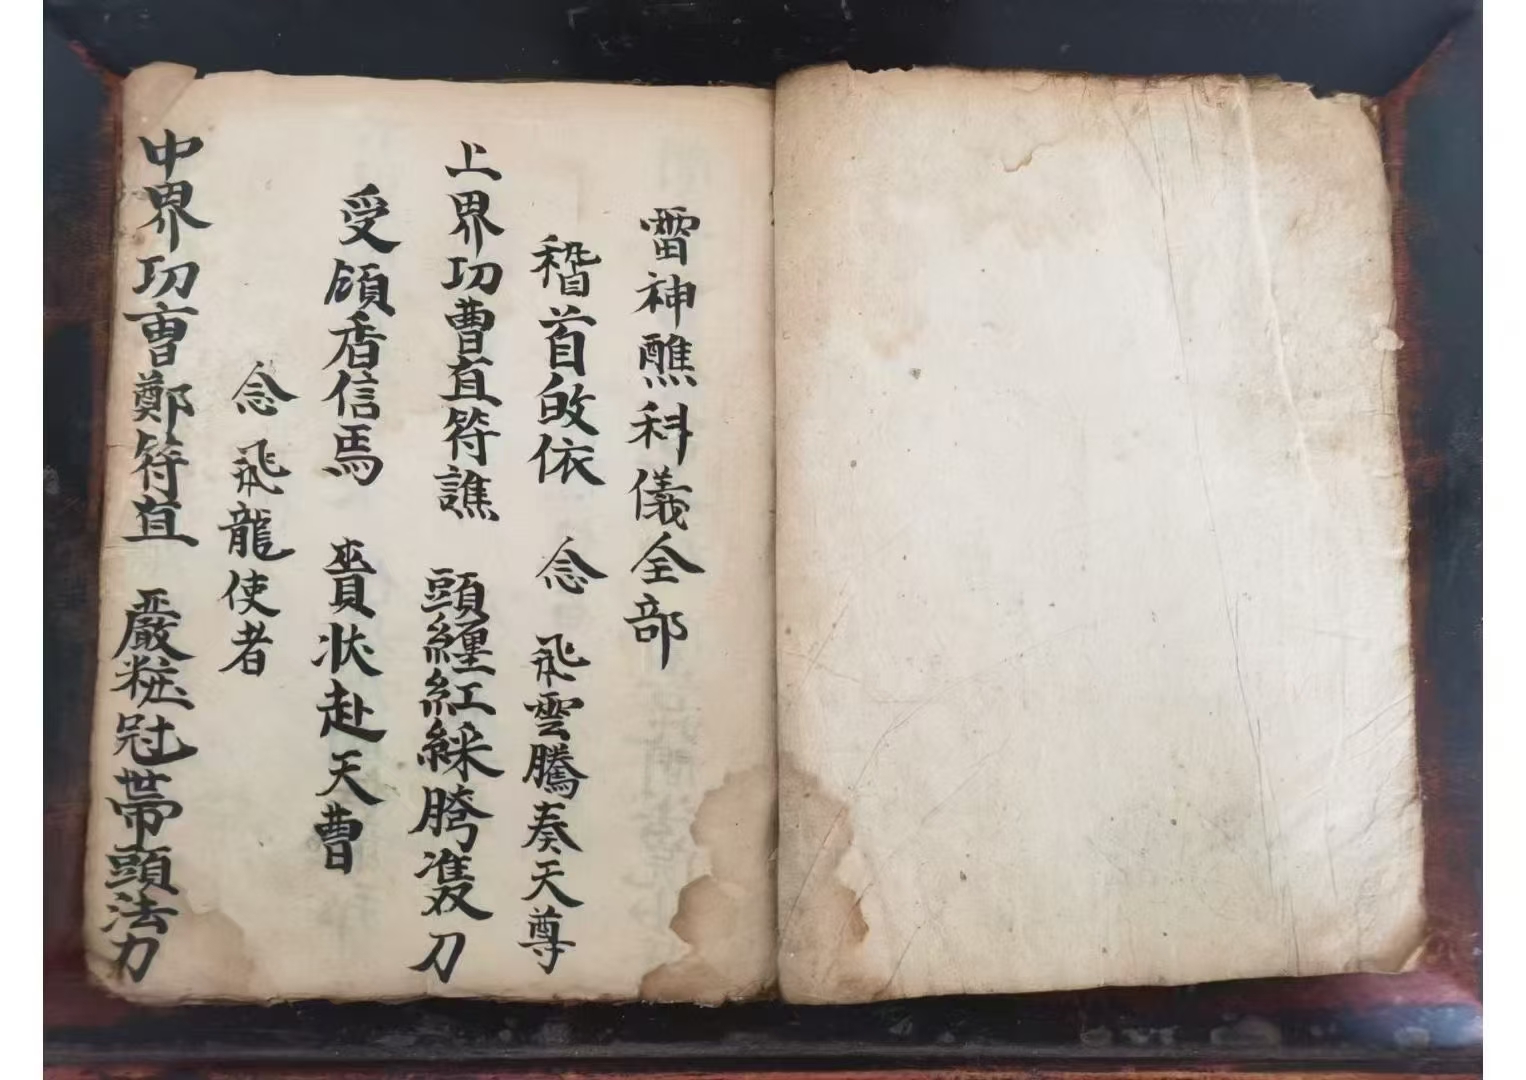 雷神醮科儀全部
稽首皈依 念 飛雲騰奏天尊
上界功曹直符譙 頭纏紅綵胯凖刀
受領香信焉 賫状赴天曹
念 飛龍使者
中界功曹鄭符直 嚴粧冠带頭法力